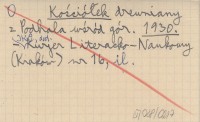 Kościółek drewniany
z Podhala wśród gór. 1930.
Kuryer Literacko-Naukowy
(Kraków) nr 16, il.